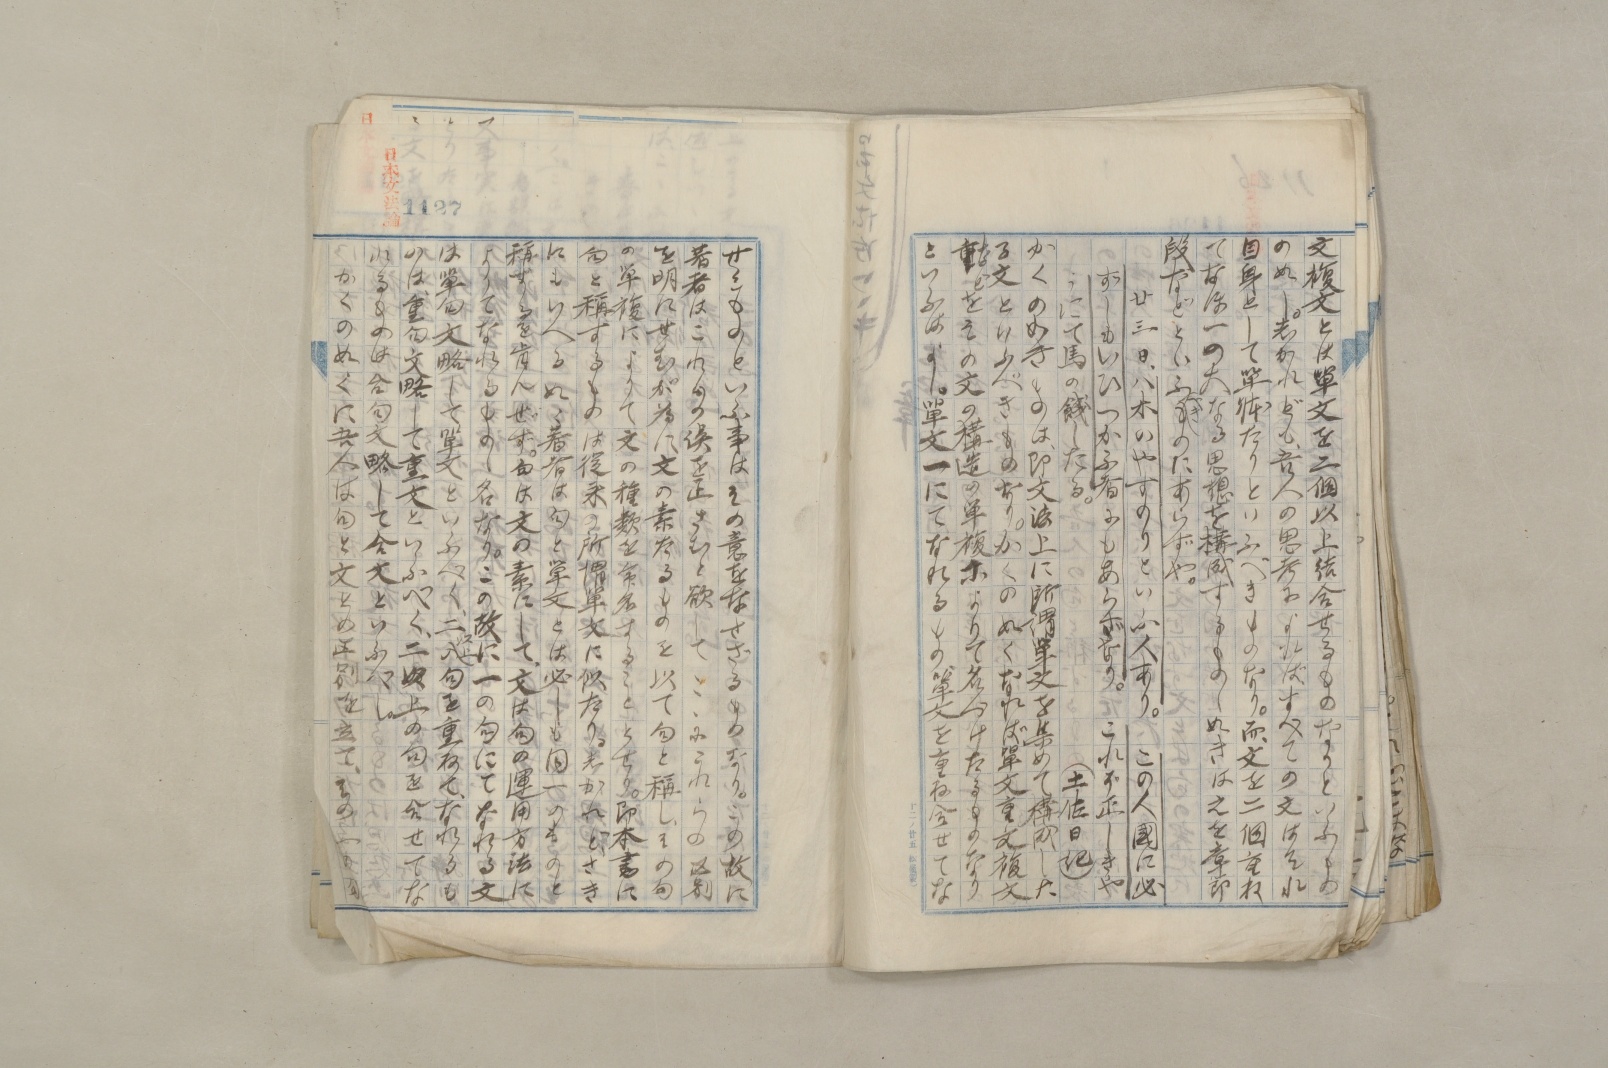 文複文とは單文を二個以上結合せるものなりといふもの
のぬし。志かれども、吾人の思考によればすべての文はそれ
自身として單躰たりといふべきものなり。而、文を二個重ね
てなほ一の大なる思想を構成するものゝ如きは之を章節
段などといふべきものにあらずや。
廿三日、八木のやすのりといふ人あり。この人國に必
ずしもいひつかふ者にもあらずなり。これぞ正しきや
うにて馬の餞したる。(土佐日記)
かくの如きものは、即文法上に所謂單文を集めて構成した
る文といふべきものなり。かくの如くなれば單文重文複文
などをその文の構造の單複によりて名づけたるものなり
といふはよし。單文一にてなれるもの、單文を重ね合せてな
1127
日本文法論
せるものといふ事はその意をなさざるものなり。この故に
著者はこれらの誤を正さむと欲して、こゝにこれらの區別
を明にせむが為に文の素たるものを以て句と稱し、その句
の單複によりて文の種類を命名することとせり。即本書に
句と稱するものは從来の所謂單文に似たり。志かれどさき
にもいへる如く著者は句と單文とは必しも同一のものと
稱するを肯んぜず。句は文の素にして、文は句の運用方法に
よりてなれるものゝ名なり。この故に一の句にてなれる文
は單句文略して單文といふべく、二以上句を重ねてなれるも
のは、重句文略して重文といふべく、二以上の句を合せてな
れるものは合句文略して合文といふべし。
かくの如くに吾人は句と文との區別を立て、その